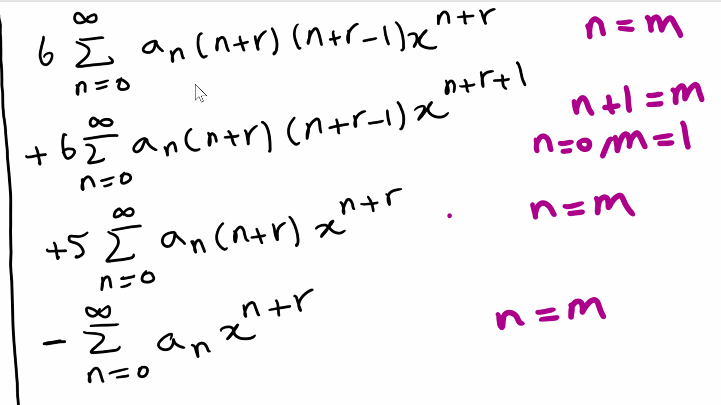 6 ∑_{n=0}^{∞} a_n (n+r) (n+r-1) x^{n+r} n=m
+ 6 ∑_{n=0}^{∞} a_n (n+r) (n+r-1) x^{n+r+1} n+1=m
n=0, m=1
+5 ∑_{n=0}^{∞} a_n (n+r) x^{n+r} . n=m
- ∑_{n=0}^{∞} a_n x^{n+r} n=m